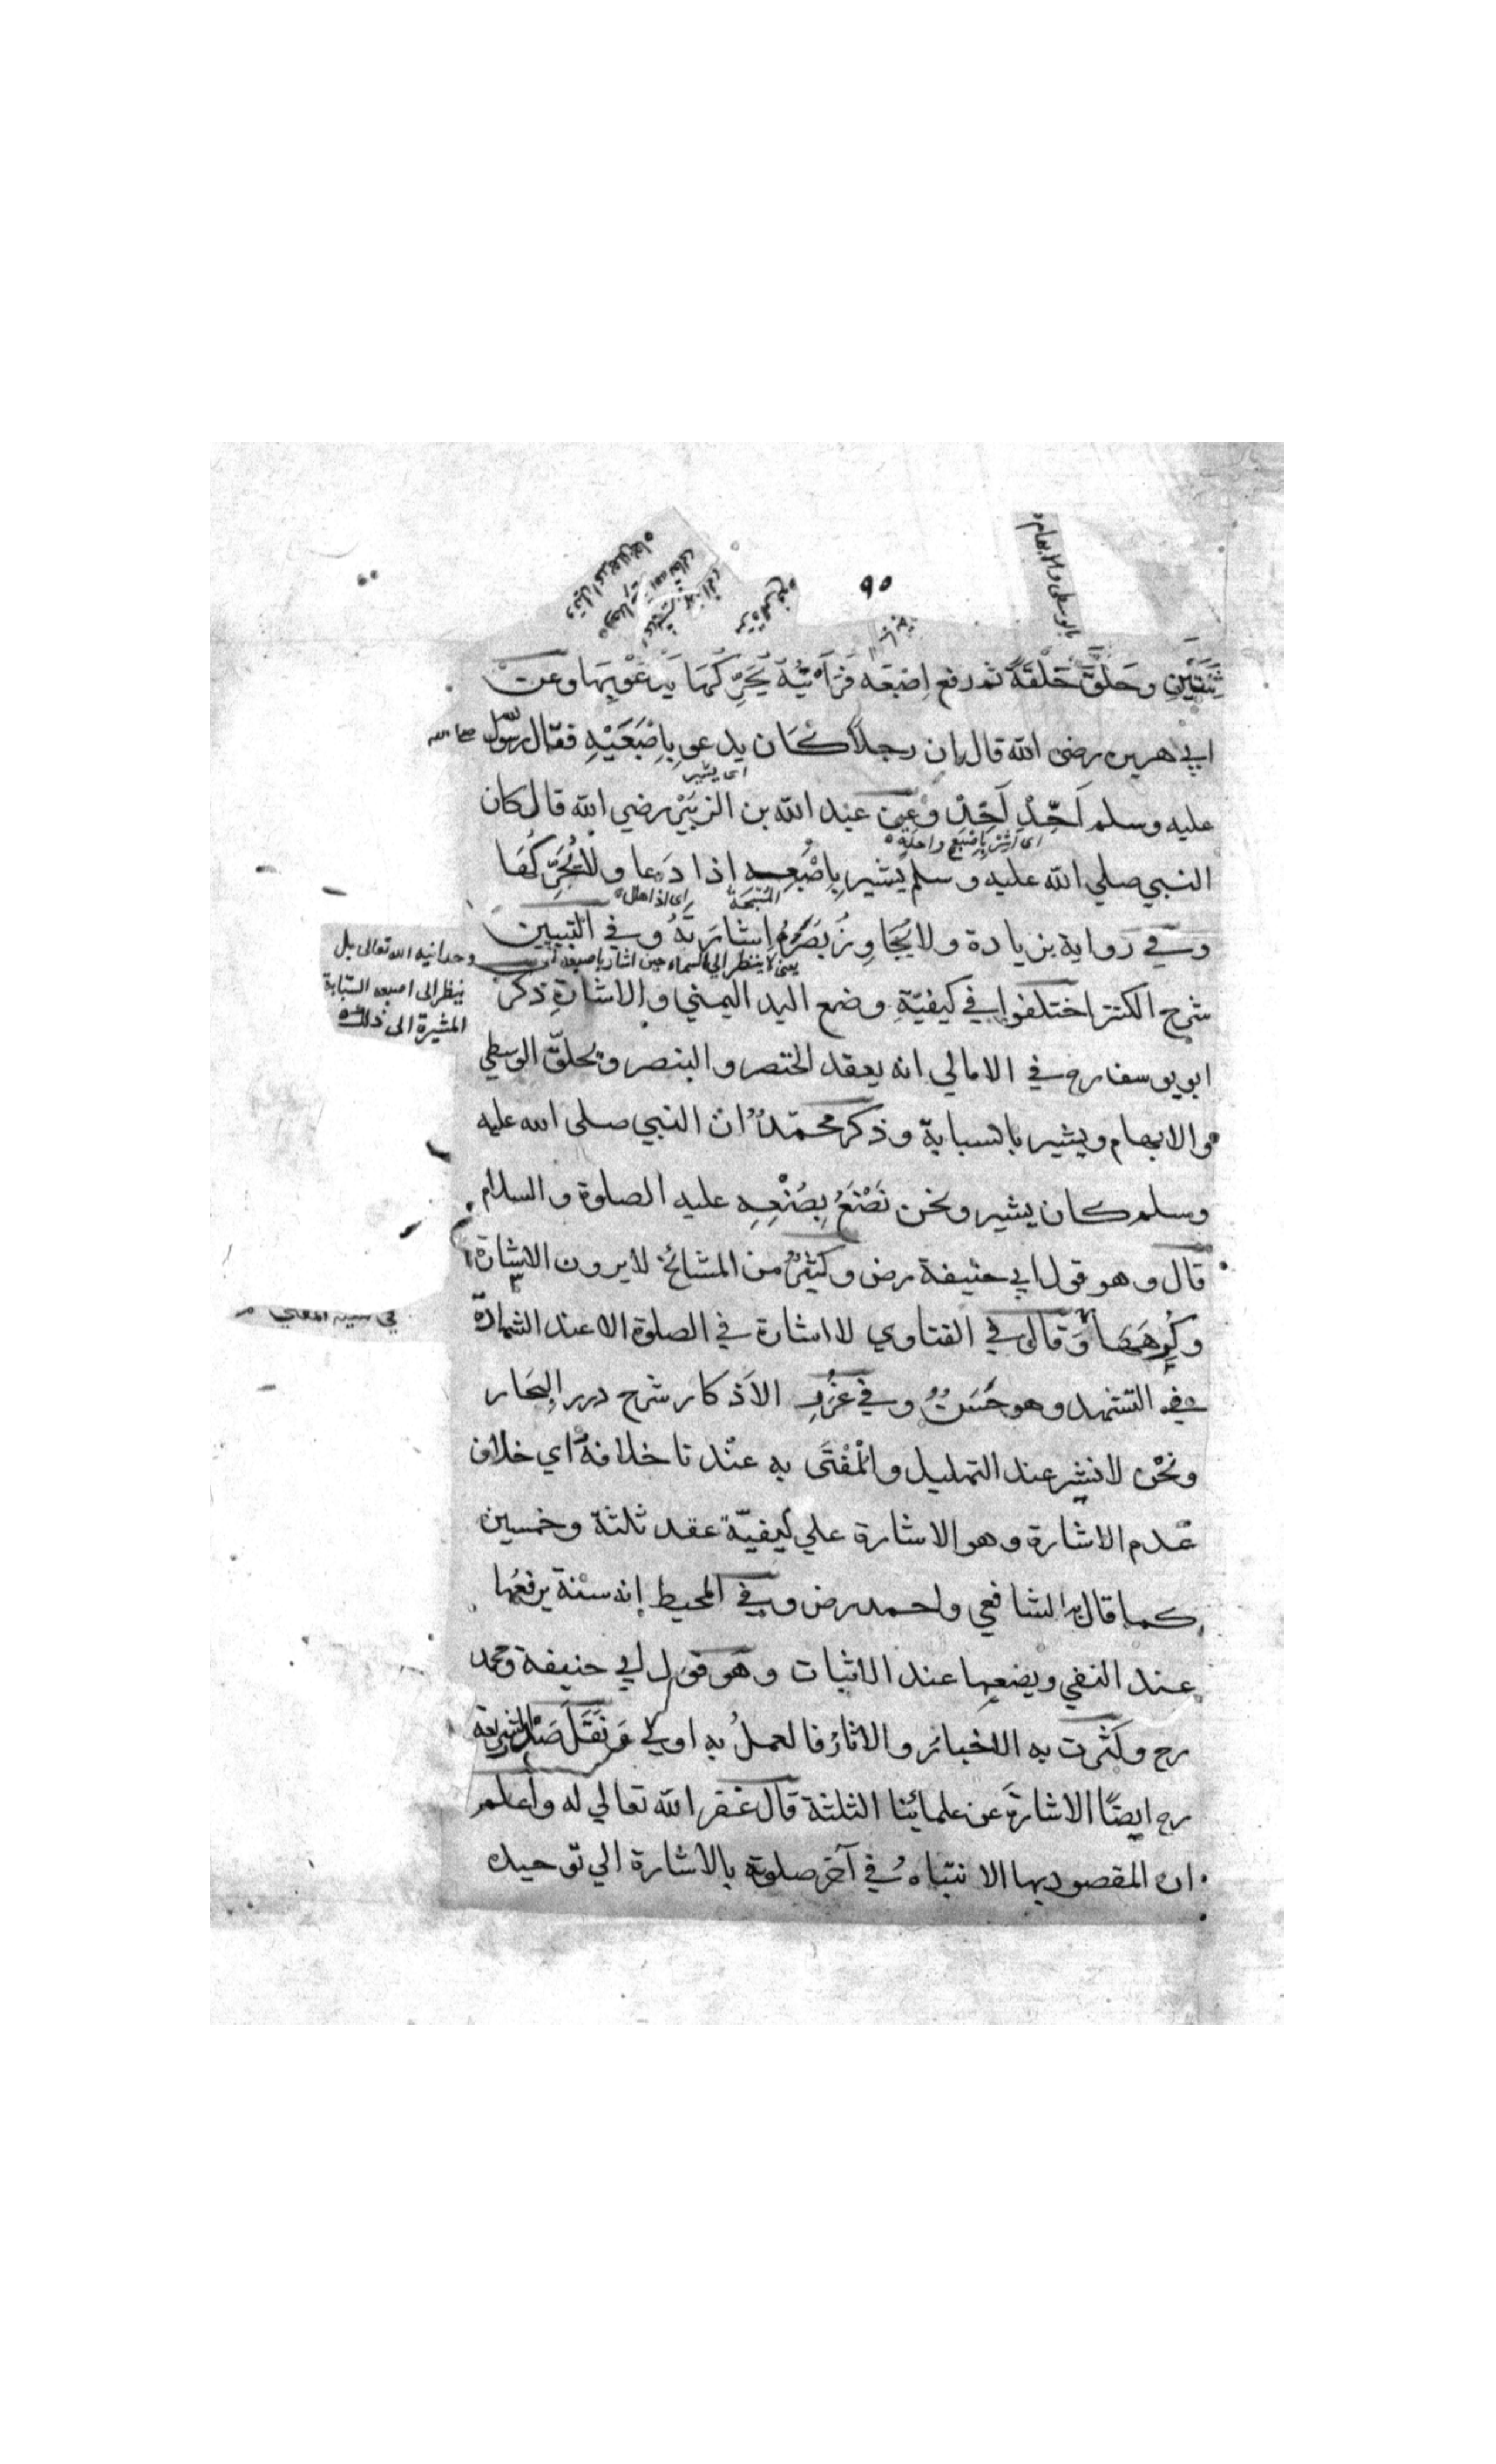 ٩٥
بالوسطى والابهام
ثِنْتَيْنِ وحَلَّقَ حَلْقَةً ثم رفع اِصْبَعَه فَرَأَيْتُهُ يُحَرِّكُهَا يَدْعُوْ بِهَا وعَنْ
ابي هريرة رضى الله قال ان رجلاً كَان يدعو بِاِصْبَعَيْهِ فقال رسول الله صلى الله
اى يشير
عليه وسلم اَحِّدْ اَحِّدْ وَعَنْ عبد الله بن الزبَيْر رضي الله قال كان
اى اَشِرْ بِاِصْبَعٍ واحِدَةٍ
النبي صلي الله عليه و سلم يُشير بِاِصْبَعِهِ اذا دَعا ولا يُحَرِّكُهَا
المُسَبِّحَة
اى اذا هلل
وفي رواية بزيادة ولا يُجَاوِزُ بَصَرُهُ اِشَارَتَهُ وفي التبيين
يعنى لا ينظر الى السماء حين اشار باصبعه
وحدانيه الله تعالى بل
ينظر الى اصبعه السّبّابة
المشيرة الى ذلك
شرح الكنز اختلفوا في كيفيّةِ وضع اليد اليمني والاشارةِ ذكر
ابو يوسف رح في الامالي انه يعقد الخنصر و البنصر ويحلّق الوسطي
والابهام ويشير بالسبابة وذكر محمّدٌ ان النبي صلى الله عليه
وسلم كان يشير ونحن نَصْنَعُ بِصُنْعِهِ عليه الصلوة والسلام
قال وهو قول ابي حنيفة رض وكثيرٌ من المشائخ لا يرون الاشارة
وكُرِهَهَا وَقال في الفتاوي لا اشارة في الصلوة الا عند الشهادة
في التشهد وهو حَسَنٌ وفي غُرَرِ الاَذكار شرح درر البحَار
ونحْن لا نشير عند التهليل والمُفْتَى به عنْدنا خلافهُ اي خلاف
عَدم الاشارة وهو الاشارة علي كيفيّة عقد ثلثة وخمسين
كما قال به الشافعي واحمد رض وفي المحيط اِنه سنْة يرفعُها
عند النفي ويضعها عند الاثبات وهو قول ابي حنيفة ومحمد
رح وكَثُرت به الاخبار والاثار فالعملُ به اولي وَنَقَلَ صَدْر الشريعة
رح ايضًا الاشارةَ عن علمائنا الثلثة قال غفر الله تعالي له واعلم
ان المقصود بها الانتباهُ في آخر صلوته بالاشارة الي توحيده